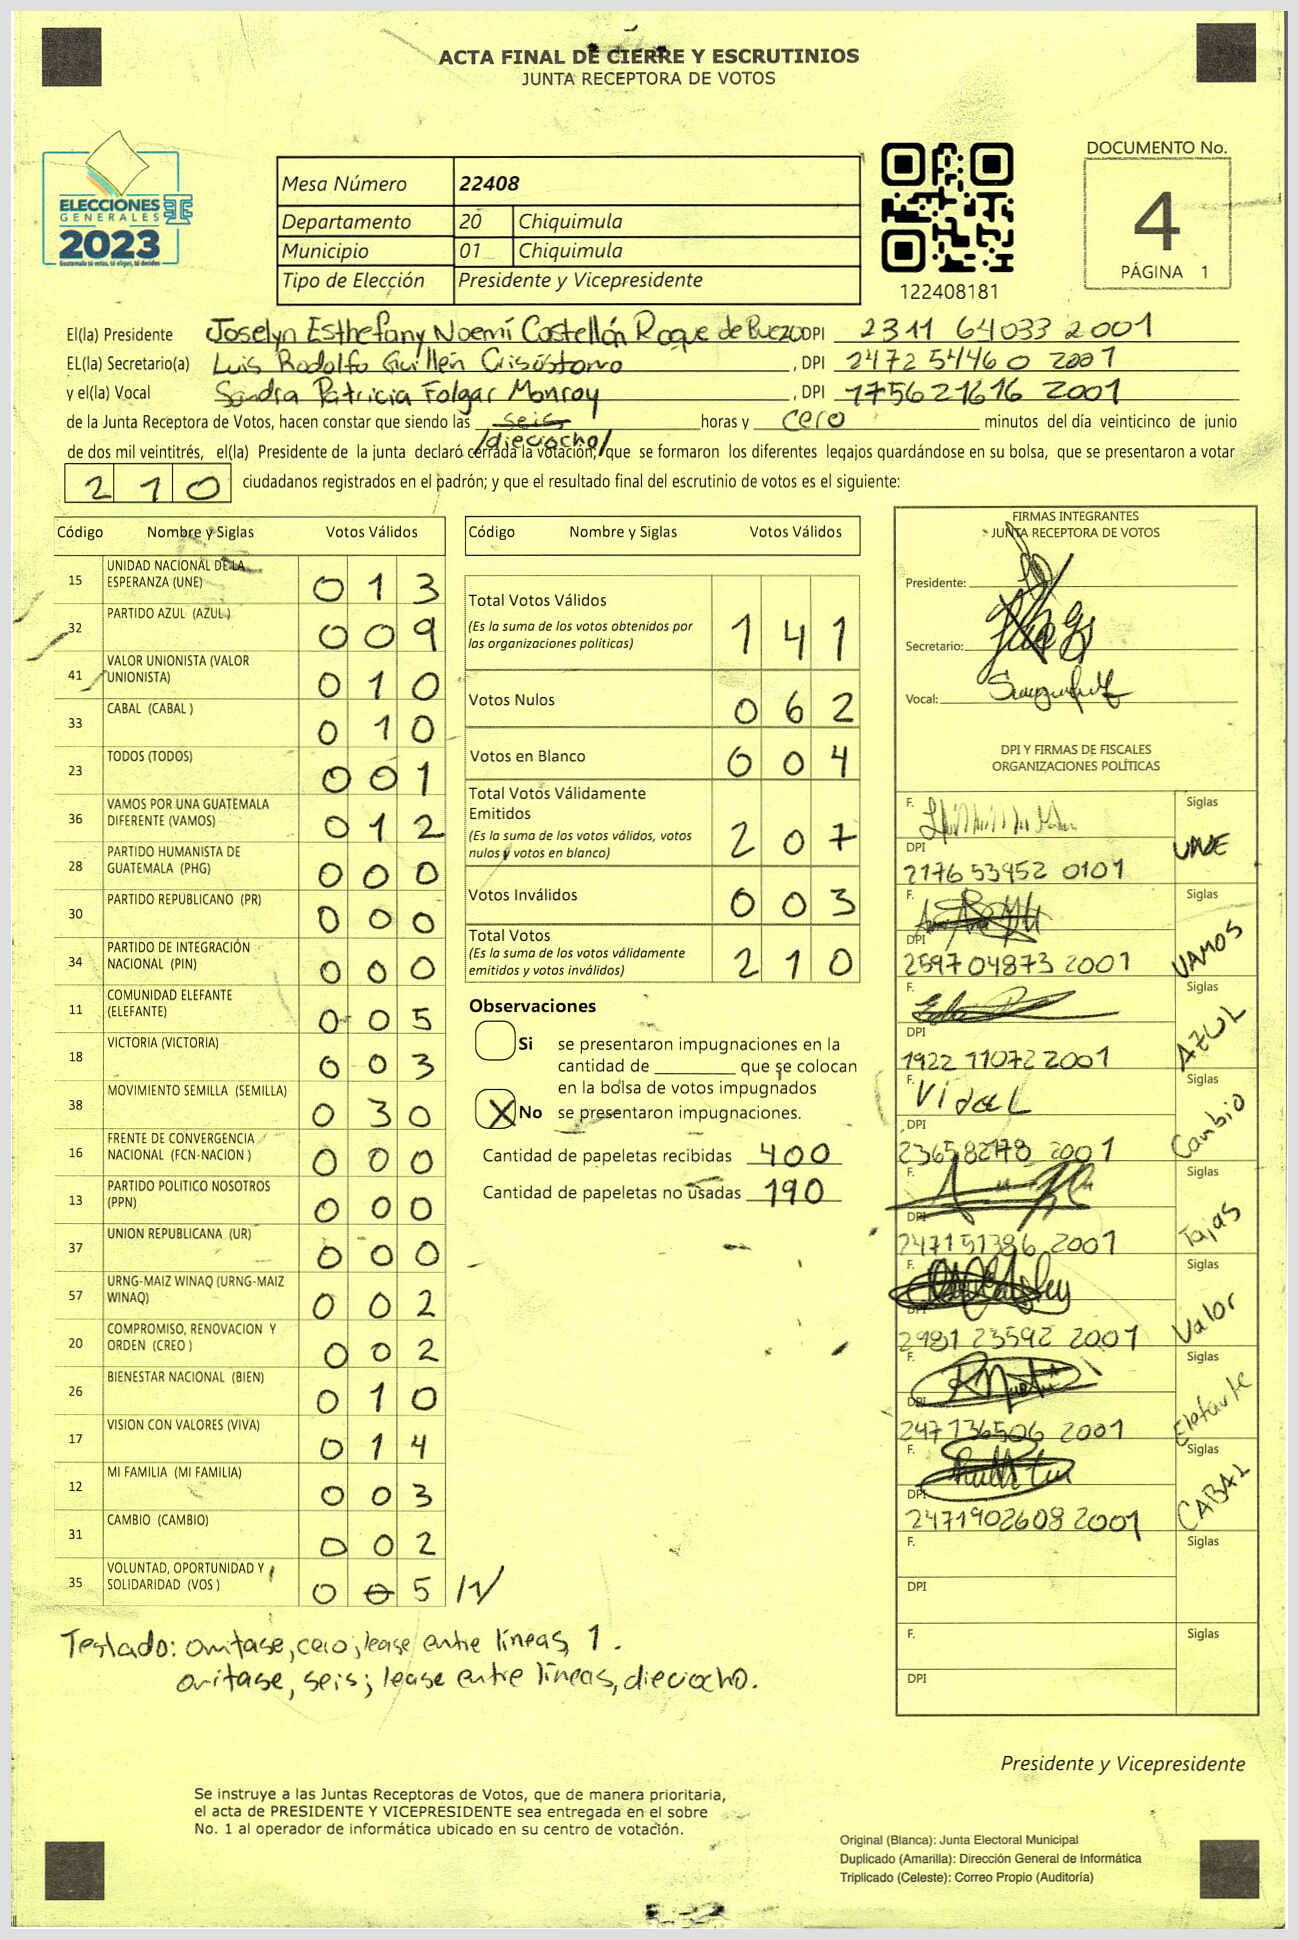 ACTA FINAL DE CIERRE Y ESCRUTINIOS
JUNTA RECEPTORA DE VOTOS
ELECCIONES
GENERALES
2023
Mesa Número 22408
Departamento 20 Chiquimula
Municipio 01 Chiquimula
Tipo de Elección Presidente y Vicepresidente
122408181
DOCUMENTO No.
4
PÁGINA 1
El(la) Presidente Joselyn Esthefany Noemí Castellón Roque de Buezo DPI 2311 64033 2001
EL(la) Secretario(a) Luis Rodolfo Guillén Crisóstomo , DPI 2472 54460 2001
y el(la) Vocal Sandra Patricia Folgar Monroy , DPI 175621616 2001
de la Junta Receptora de Votos, hacen constar que siendo las seis horas y cero minutos del día veinticinco de junio
/dieciocho/
de dos mil veintitrés, el(la) Presidente de la junta declaró cerrada la votación, que se formaron los diferentes legajos guardándose en su bolsa, que se presentaron a votar
210 ciudadanos registrados en el padrón; y que el resultado final del escrutinio de votos es el siguiente:
Código Nombre y Siglas Votos Válidos
15 UNIDAD NACIONAL DE LA ESPERANZA (UNE) 0 1 3
32 PARTIDO AZUL (AZUL ) 0 0 9
41 VALOR UNIONISTA (VALOR UNIONISTA) 0 1 0
33 CABAL (CABAL ) 0 1 0
23 TODOS (TODOS) 0 0 1
36 VAMOS POR UNA GUATEMALA DIFERENTE (VAMOS) 0 1 2
28 PARTIDO HUMANISTA DE GUATEMALA (PHG) 0 0 0
30 PARTIDO REPUBLICANO (PR) 0 0 0
34 PARTIDO DE INTEGRACIÓN NACIONAL (PIN) 0 0 0
11 COMUNIDAD ELEFANTE (ELEFANTE) 0 0 5
18 VICTORIA (VICTORIA) 0 0 3
38 MOVIMIENTO SEMILLA (SEMILLA) 0 3 0
16 FRENTE DE CONVERGENCIA NACIONAL (FCN-NACION ) 0 0 0
13 PARTIDO POLITICO NOSOTROS (PPN) 0 0 0
37 UNION REPUBLICANA (UR) 0 0 0
57 URNG-MAIZ WINAQ (URNG-MAIZ WINAQ) 0 0 2
20 COMPROMISO, RENOVACION Y ORDEN (CREO ) 0 0 2
26 BIENESTAR NACIONAL (BIEN) 0 1 0
17 VISION CON VALORES (VIVA) 0 1 4
12 MI FAMILIA (MI FAMILIA) 0 0 3
31 CAMBIO (CAMBIO) 0 0 2
35 VOLUNTAD, OPORTUNIDAD Y SOLIDARIDAD (VOS ) 0 0 5 /1/
Testado: omitase, cero; lease entre líneas, 1.
omitase, seis; lease entre líneas, dieciocho.
Código Nombre y Siglas Votos Válidos
Total Votos Válidos 1 4 1
(Es la suma de los votos obtenidos por
las organizaciones políticas)
Votos Nulos 0 6 2
Votos en Blanco 0 0 4
Total Votos Válidamente
Emitidos 2 0 7
(Es la suma de los votos válidos, votos
nulos y votos en blanco)
Votos Inválidos 0 0 3
Total Votos 2 1 0
(Es la suma de los votos válidamente
emitidos y votos inválidos)
Observaciones
Si se presentaron impugnaciones en la
cantidad de ________ que se colocan
en la bolsa de votos impugnados
X No se presentaron impugnaciones.
Cantidad de papeletas recibidas 400
Cantidad de papeletas no usadas 190
FIRMAS INTEGRANTES
JUNTA RECEPTORA DE VOTOS
Presidente:
Secretario:
Vocal:
DPI Y FIRMAS DE FISCALES
ORGANIZACIONES POLÍTICAS
F. Siglas UNE
DPI 2176 53952 0101
F. Siglas VAMOS
DPI 2597 04873 2001
F. Siglas AZUL
DPI 1922 11072 2001
F. Vidal Siglas Cambio
DPI 236582178 2001
F. Siglas Tojas
DPI 247151386 2001
F. Siglas Valor
DPI 2981 23592 2001
F. Siglas Elefante
DPI 247136506 2001
F. Siglas CABAL
DPI 2471902608 2001
F. Siglas
DPI
F. Siglas
DPI
Presidente y Vicepresidente
Se instruye a las Juntas Receptoras de Votos, que de manera prioritaria,
el acta de PRESIDENTE Y VICEPRESIDENTE sea entregada en el sobre
No. 1 al operador de informática ubicado en su centro de votación.
Original (Blanca): Junta Electoral Municipal
Duplicado (Amarilla): Dirección General de Informática
Triplicado (Celeste): Correo Propio (Auditoría)